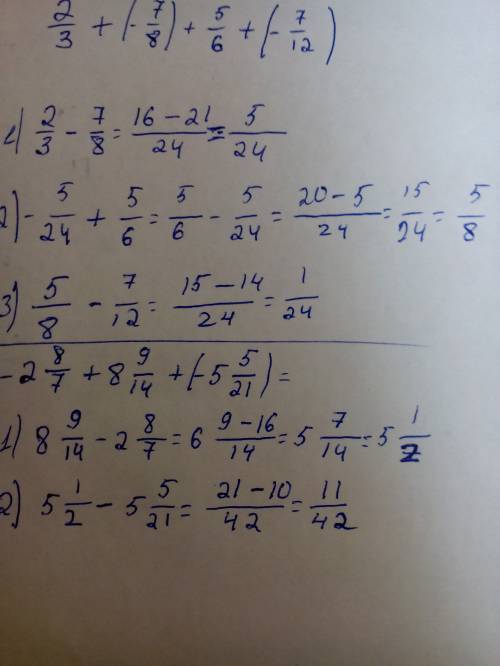 2/3 + (-7/8) + 5/6 + (-7/12)
1) 2/3 - 7/8 = (16-21)/24 = 5/24
2) -5/24 + 5/6 = 5/6 - 5/24 = (20-5)/24 = 15/24 = 5/8
3) 5/8 - 7/12 = (15-14)/24 = 1/24
-2 8/7 + 8 9/14 + (-5 5/21) =
1) 8 9/14 - 2 8/7 = 6 (9-16)/14 = 5 7/14 = 5 1/2
2) 5 1/2 - 5 5/21 = (21-10)/42 = 11/42